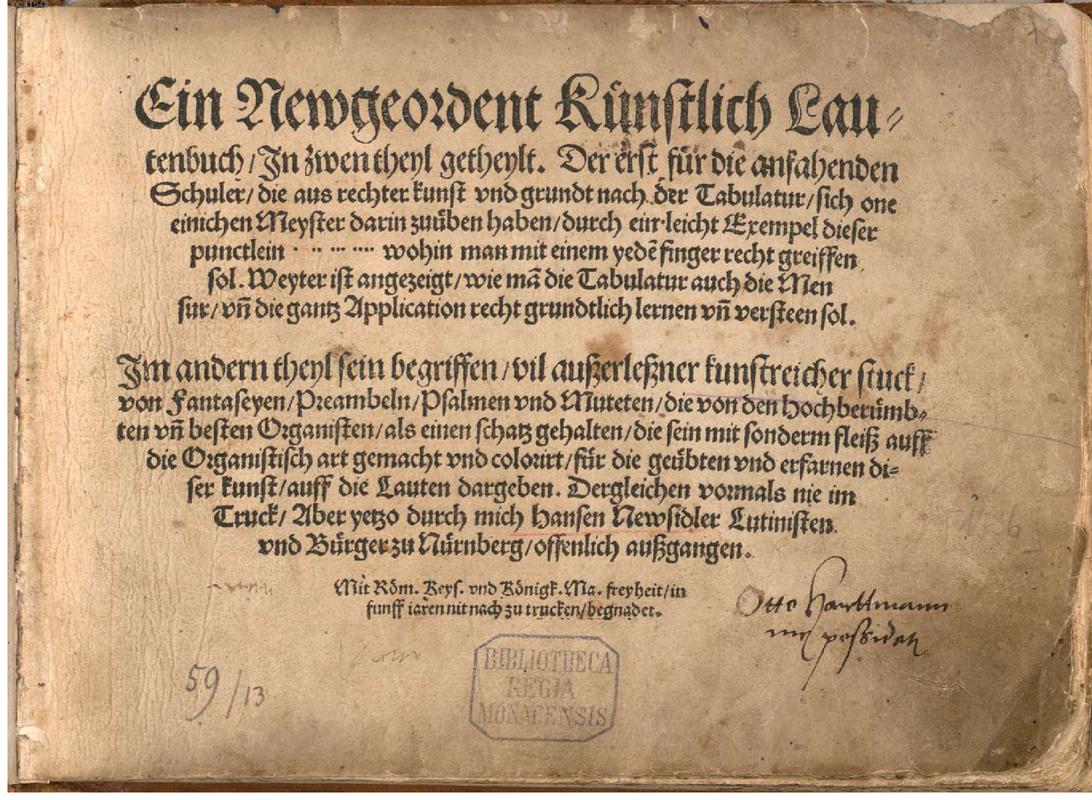 Ein Newgeordent Künstlich Lau⸗
tenbuch/ In zwen theyl getheylt. Der erst für die anfahenden
Schuler/ die aus rechter kunst vnd grundt nach der Tabulatur/ sich one
einichen Meyster darin zuüben haben/ durch ein leicht Exempel dieser
punctlein · ·· ··· ···· wohin man mit einem yedē finger recht greiffen
sol. Weyter ist angezeigt/ wie mā die Tabulatur auch die Men
sur/ vn̄ die gantz Application recht grundtlich lernen vn̄ versteen sol.
Im andern theyl sein begriffen/ vil außerleßner kunstreicher stuck/
von Fantaseyen/ Preambeln/ Psalmen vnd Muteten/ die von den Hochberümb⸗
ten vn̄ besten Organisten/ als einen schatz gehalten/ die sein mit sonderm fleiß auff
die Organistisch art gemacht vnd colorirt/ für die geübten vnd erfarnen di⸗
ser kunst/ auff die Lauten dargeben. Dergleichen vormals nie im
Truck/ Aber yetzo durch mich Hansen Newsidler Lutinisten
vnd Bürger zu Nürnberg/ offenlich außgangen.
Mit Röm. Keys. vnd Königk. Ma. freyheit/ in
funff iaren nit nach zu trucken/ begnadet.
Otto Harttmann
me possidet
59/13
BIBLIOTHECA
REGIA
MONACENSIS